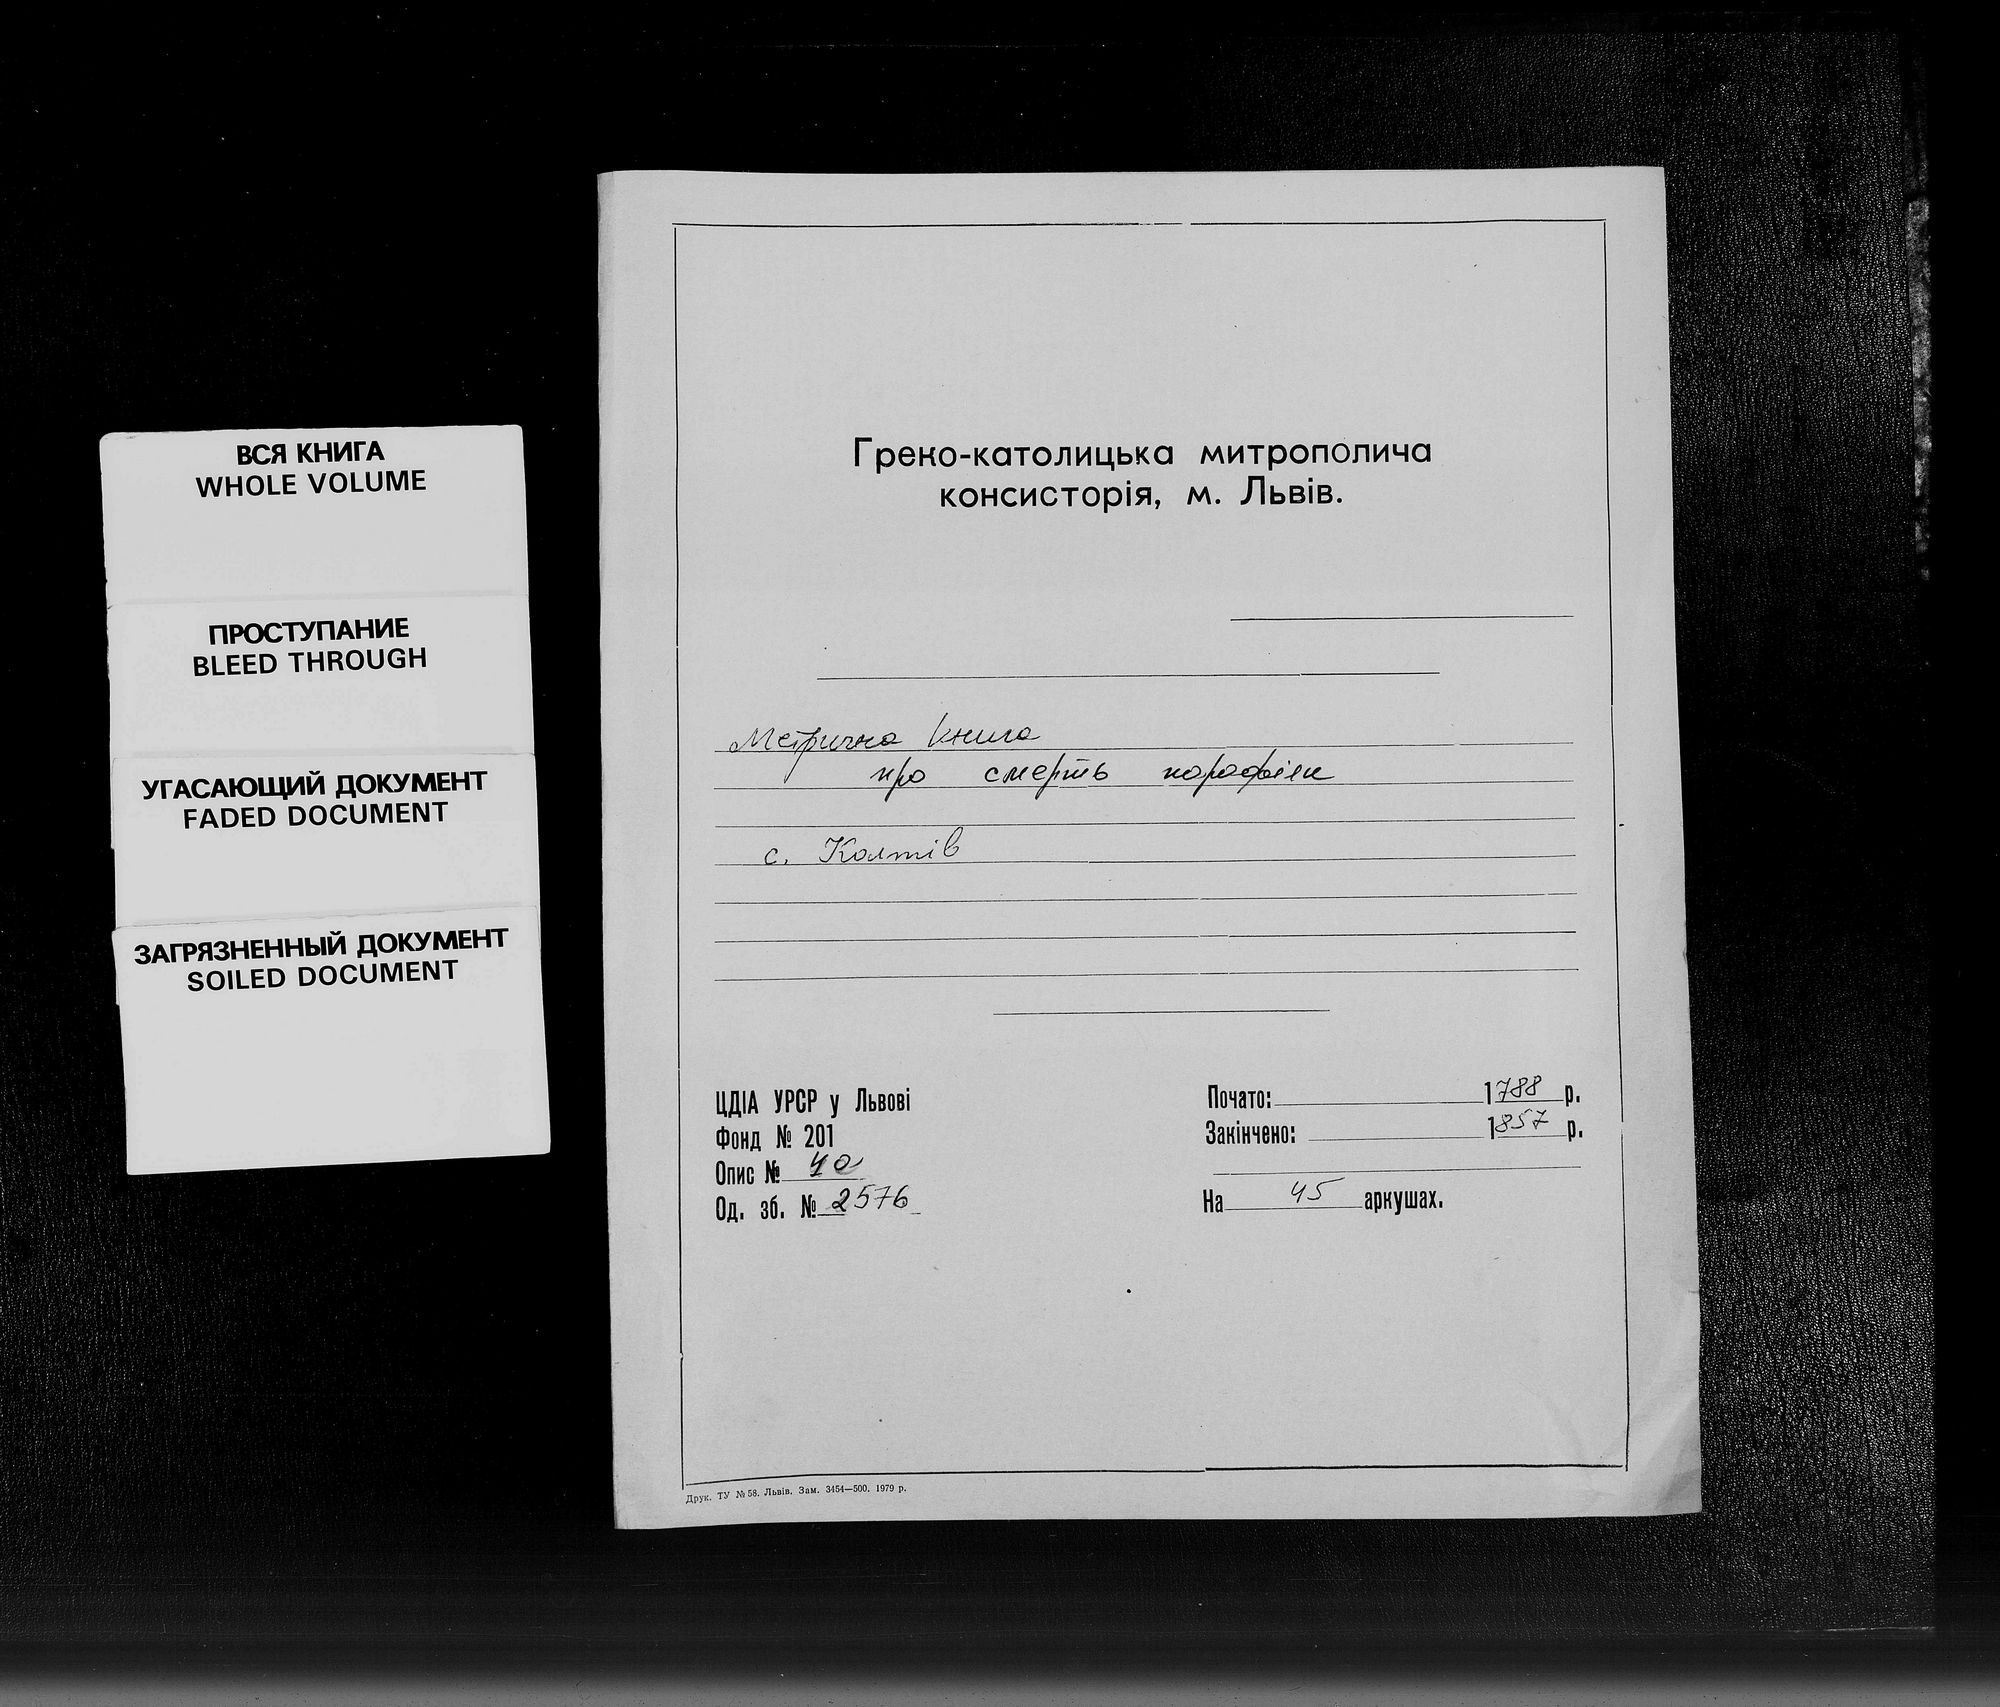 ВСЯ КНИГА
WHOLE VOLUME
ПРОСТУПАНИЕ
BLEED THROUGH
УГАСАЮЩИЙ ДОКУМЕНТ
FADED DOCUMENT
ЗАГРЯЗНЕННЫЙ ДОКУМЕНТ
SOILED DOCUMENT
Греко-католицька митрополича
консисторія, м. Львів.
Метрична книга
про смерть парафіян
с. Колтів
ЦДІА УРСР у Львові
Фонд № 201
Опис № 4а
Од. зб. № 2576
Почато: 1788 р.
Закінчено: 1857 р.
На 45 аркушах.
Друк. ТУ № 58. Львів. Зам. 3454—500. 1979 р.